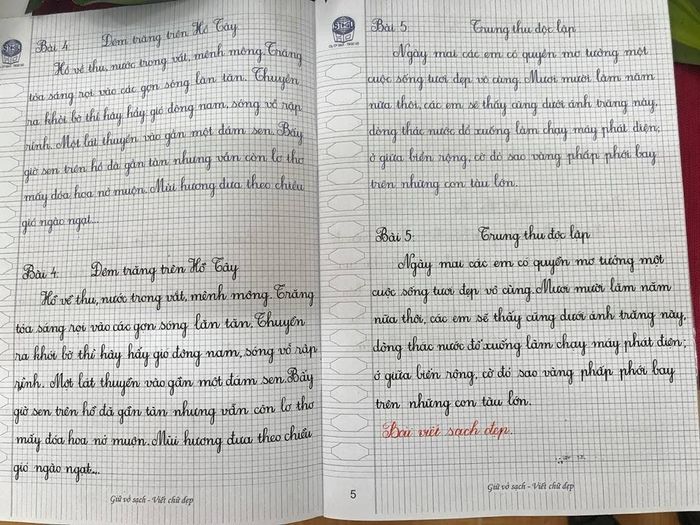 Bài 4. Đêm trăng trên Hồ Tây
Hồ về thu, nước trong vắt, mênh mông. Trăng
tỏa sáng rọi vào các gợn sóng lăn tăn. Thuyền
ra khỏi bờ thì hây hẩy gió đông nam, sóng vỗ rập
rình. Một lát thuyền vào gần một đám sen. Bấy
giờ sen trên hồ đã gần tàn nhưng vẫn còn lơ thơ
mấy đóa hoa nở muộn. Mùi hương đưa theo chiều
gió ngào ngạt...
Bài 4. Đêm trăng trên Hồ Tây
Hồ về thu, nước trong vắt, mênh mông. Trăng
tỏa sáng rọi vào các gợn sóng lăn tăn. Thuyền
ra khỏi bờ thì hây hẩy gió đông nam, sóng vỗ rập
rình. Một lát thuyền vào gần một đám sen. Bấy
giờ sen trên hồ đã gần tàn nhưng vẫn còn lơ thơ
mấy đóa hoa nở muộn. Mùi hương đưa theo chiều
gió ngào ngạt...
Giữ vở sạch - Viết chữ đẹp
Bài 5 Trung thu độc lập
Ngày mai các em có quyền mơ tưởng một
cuộc sống tươi đẹp vô cùng. Mươi mười lăm năm
nữa thôi, các em sẽ thấy cũng dưới ánh trăng này,
dòng thác nước đổ xuống làm chạy máy phát điện;
ở giữa biển rộng, cờ đỏ sao vàng phấp phới bay
trên những con tàu lớn.
Bài 5: Trung thu độc lập
Ngày mai các em có quyền mơ tưởng một
cuộc sống tươi đẹp vô cùng. Mươi mười lăm năm
nữa thôi, các em sẽ thấy cũng dưới ánh trăng này,
dòng thác nước đổ xuống làm chạy máy phát điện;
ở giữa biển rộng, cờ đỏ sao vàng phấp phới bay
trên những con tàu lớn.
Bài viết sạch đẹp.
5
Giữ vở sạch - Viết chữ đẹp